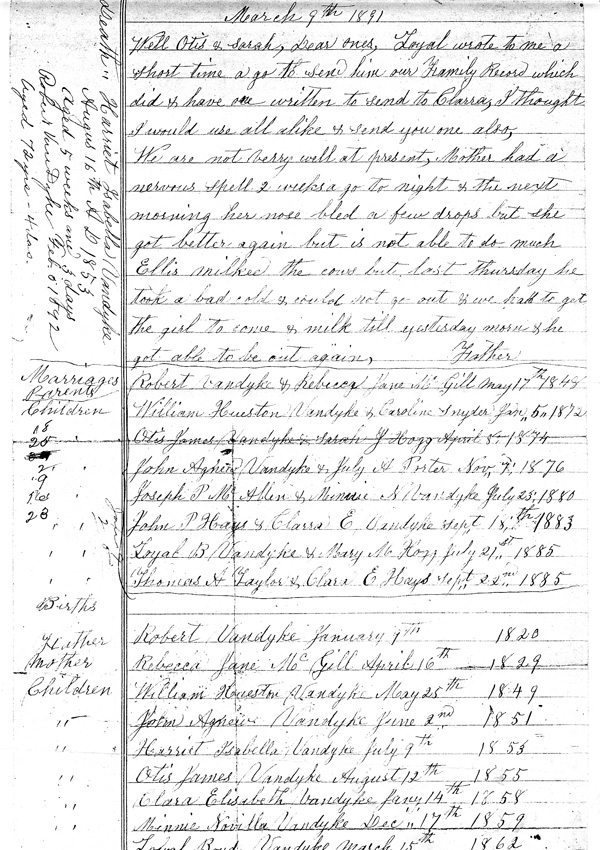 March 9th 1891
Well Otis & Sarah, Dear ones, Loyal wrote to me a
short time a go to send him our Family Record which
did & have one written to send to Clarra, I thought
I would use all alike & send you one also,
We are not verry well at present, Mother had a
nervous spell 2 weeks a go to night & the next
morning her nose bled a few drops but she
got better again but is not able to do much
Ellis milked the cows but last thursday he
took a bad cold & could not go out & we had to get
the girl to come & milk till yesterday morn & he
got able to be out again, Father
Death " Harriet Isabella Vandyke
Augus 16th A D 1853
Aged 5 weeks and 3 days
Robert Van Dyke Feb. 1892
Aged 72 yrs - 4 das.
Marriages
Parents Robert Vandyke & Rebecca Jane Mc Gill May 17th 1848
Children William Hueston Vandyke & Caroline Snyder Jan, 5, 1872
18
25 Otis James Vandyke & Sarah J Hogg April 8: 1874
2 " John Agnew Vandyke & July A Porter Nov, 7: 1876
9 " Joseph P Mc Allen & Minnie N Vandyke July 23, 1880
23 " John P Hays & Clarra E Vandyke Sept 18,th 1883
" " Loyal B Vandyke & Mary M Hogg July 21st 1885
" " Thomas A Taylor & Clara E Hays Sept 22nd 1885
Births
Father Robert Vandyke January 9th 1820
Mother Rebecca Jane Mc Gill April 16th 1829
Children William Hueston Vandyke May 25th 1849
" John Agnew Vandyke June 2nd 1851
" " Harriet Isabella Vandyke July 9th 1853
" Otis James Vandyke August 12th 1855
" Clara Elisabeth Vandyke Jany 14th 1858
" Minnie Novilla Vandyke Dec " 17th 1859
" Loyal Boyd Vandyke March 15th 1862